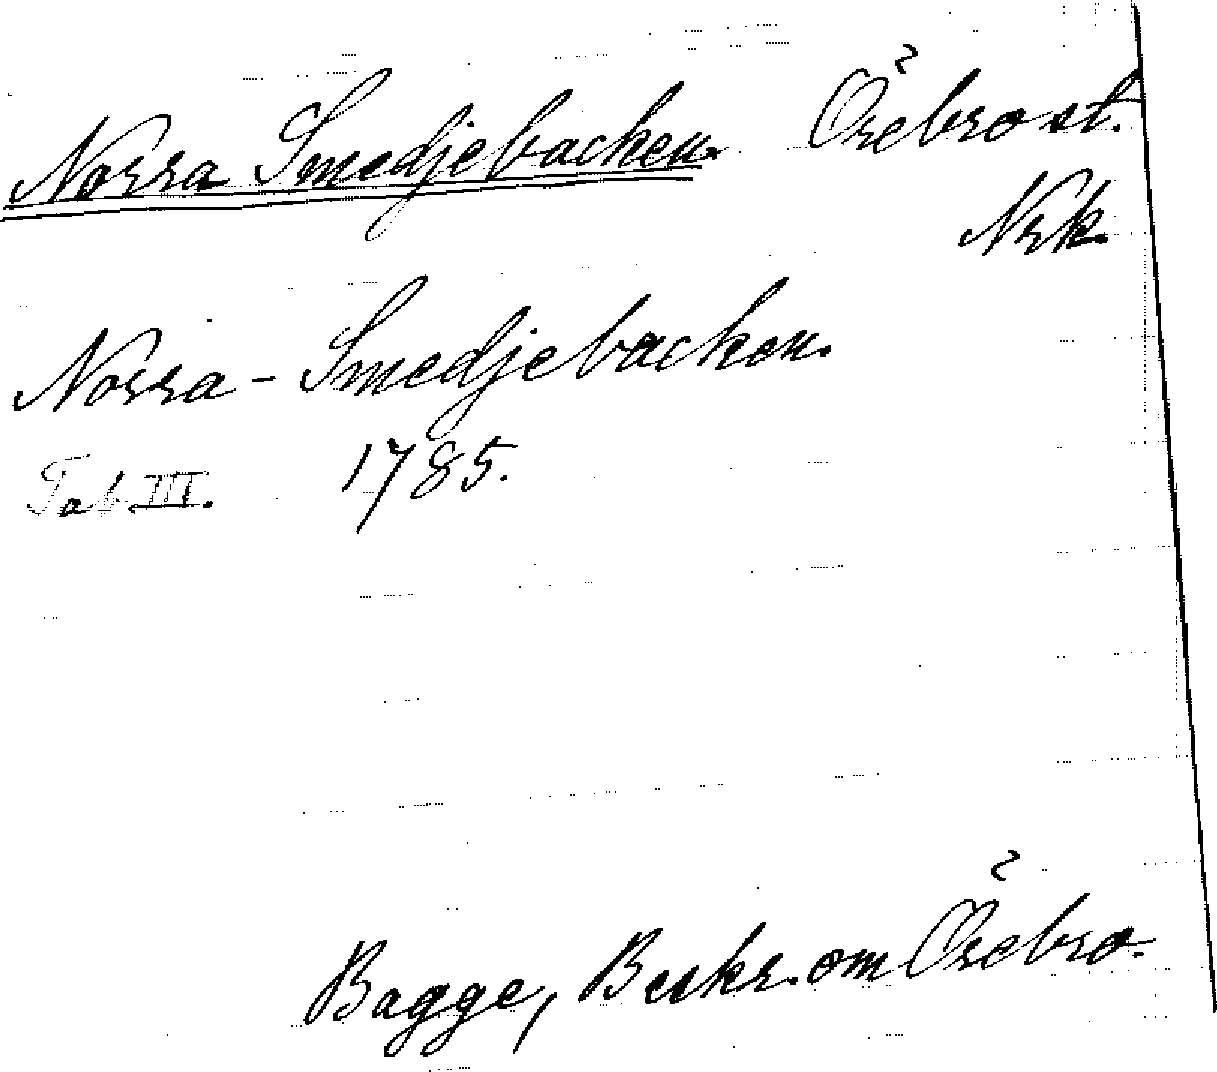 Norra Smedjebacken. Örebro st.
Nrk.
Norra-Smedjebacken.
Tab. III. 1785.
Bagge, Beskr. om Örebro.